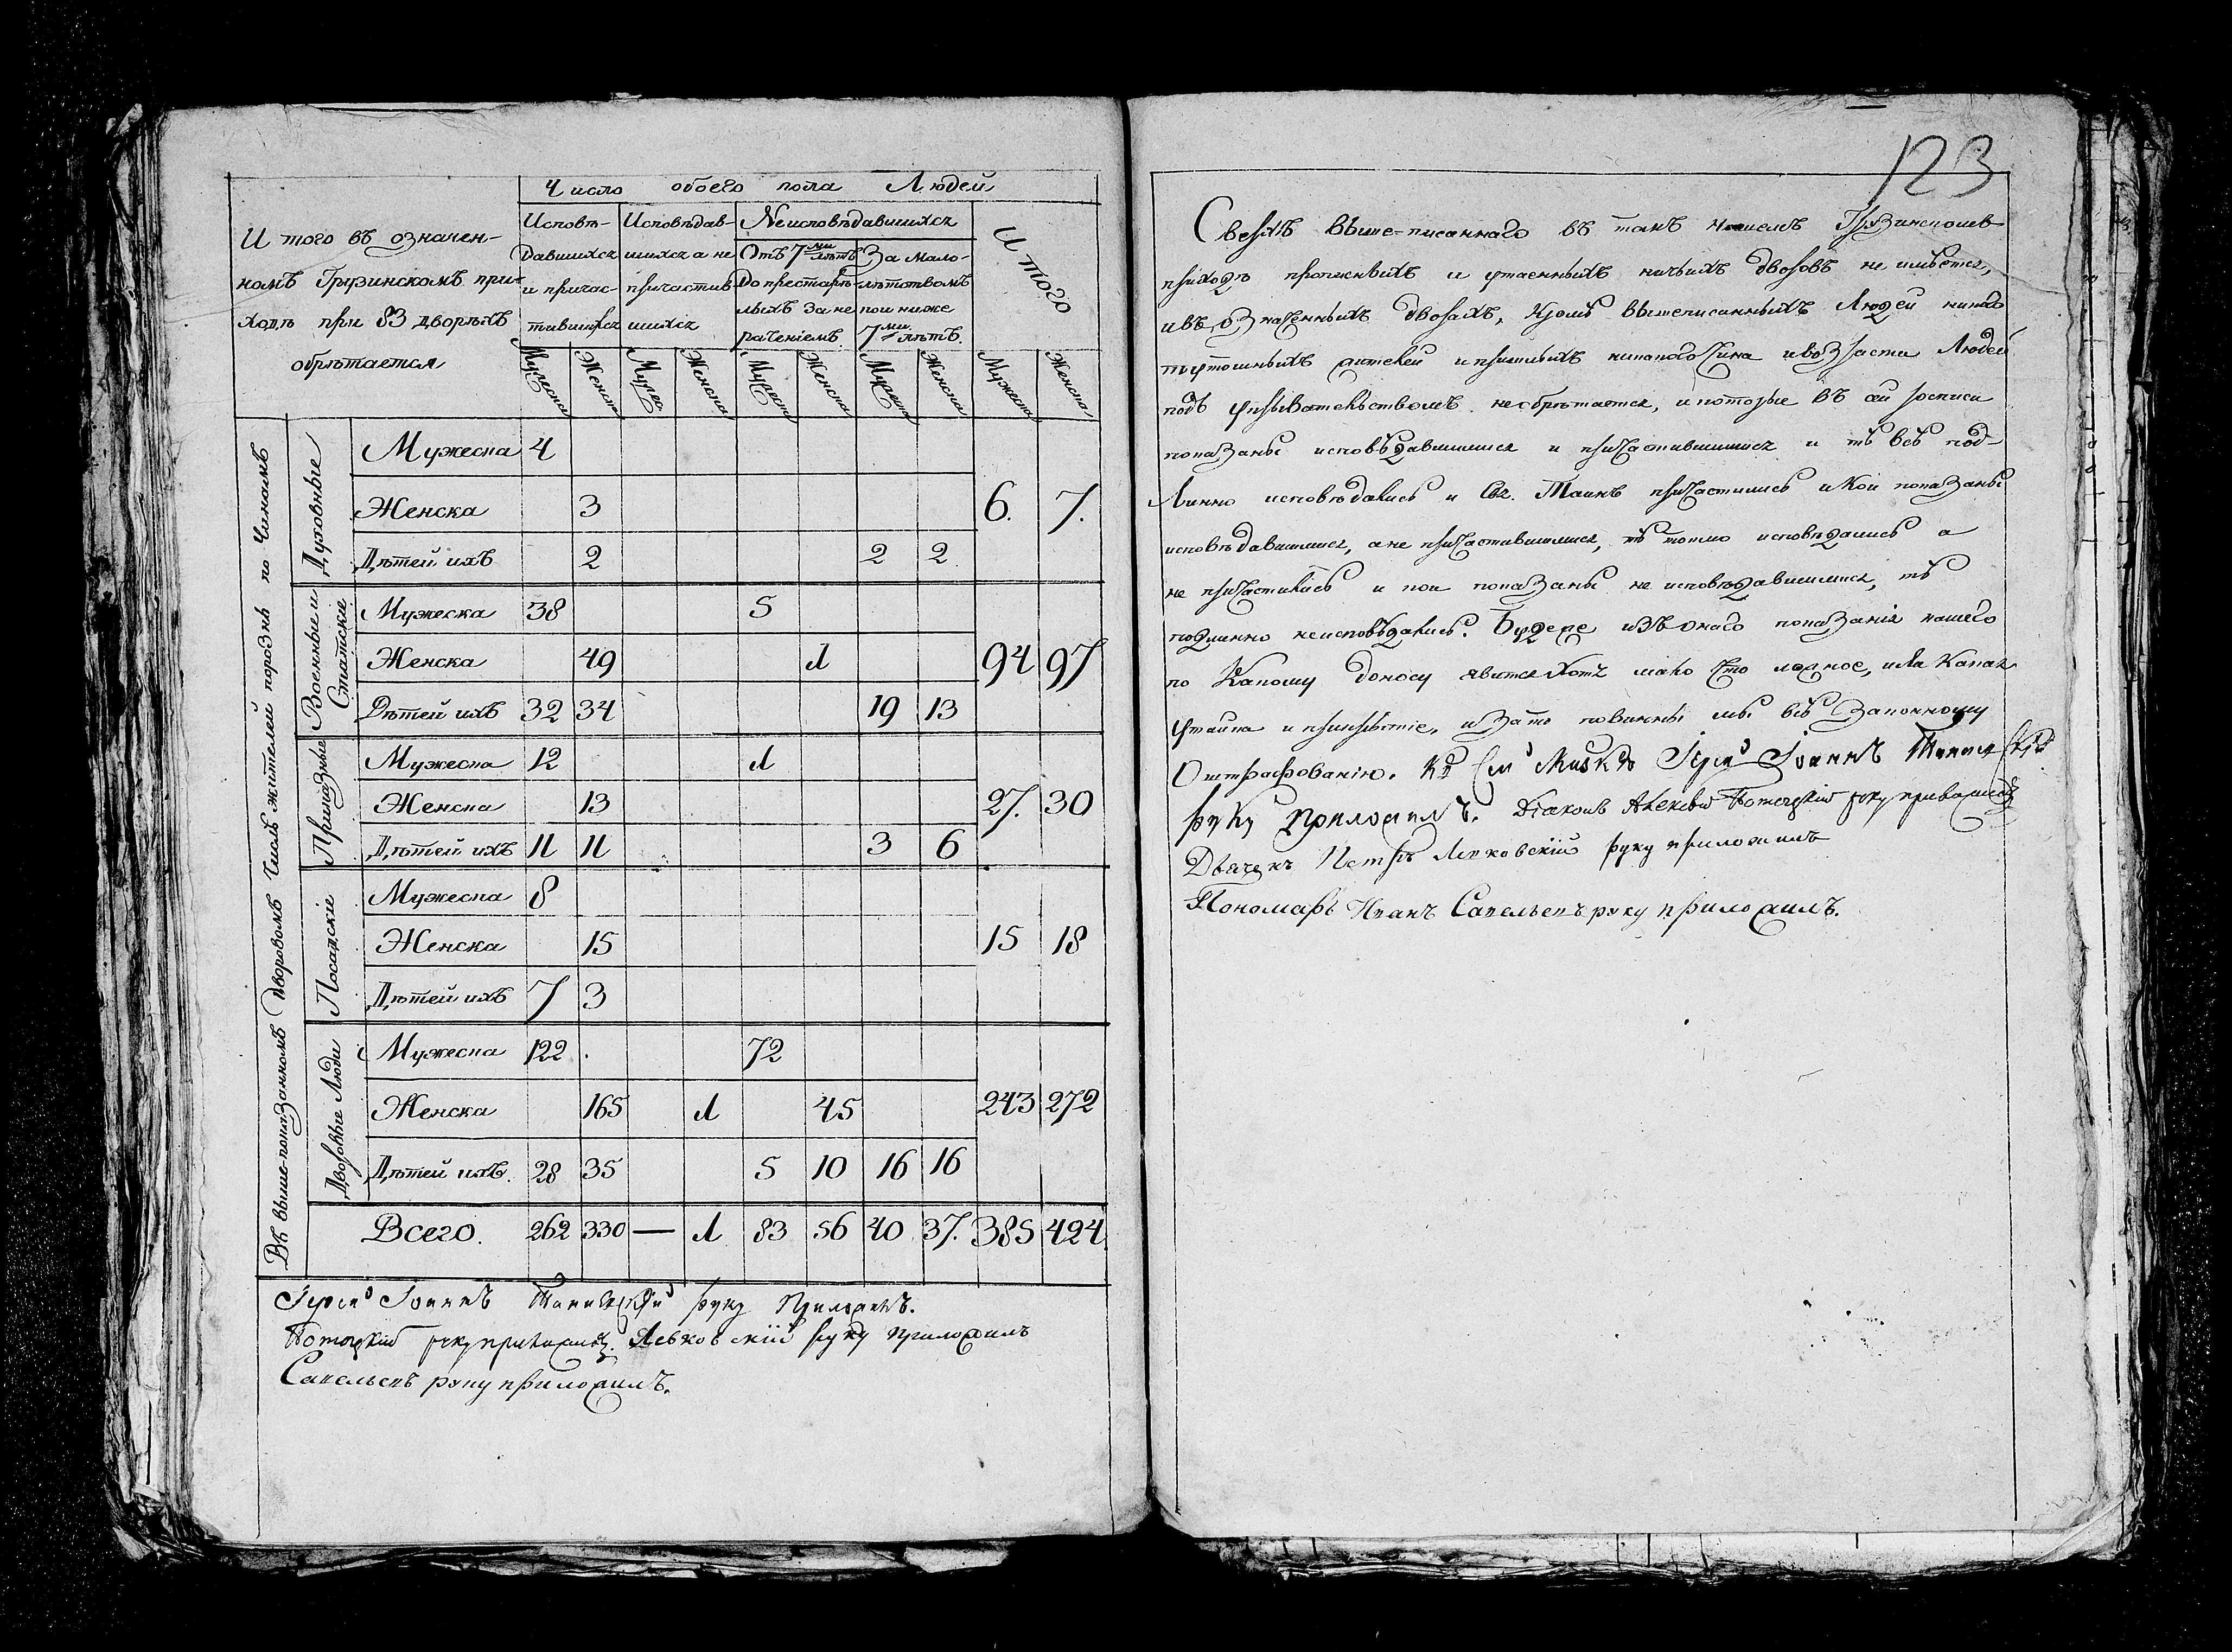 Итого въ означен-
номъ Грузинскомъ при-
ходѣ при 83 дворѣхъ
обрѣтается
Число обоего пола Людей
Исповѣ-
давшихся
и причас-
тившихся
Исповѣдав-
шихся а не
причастив
шихся
Неисповѣдавшихся
Отъ 7ми лѣтъ
До престарѣ-
лыхъ За не
раченіемъ.
За мало-
лѣтствомъ
кои ниже
7ми лѣтъ.
Итого
Мужеска Женск Мужес. Женска Мужеск Женска Мужеск Женска Мужеск Женска
Въ выше-показанномъ Дворовомъ Числѣ жителей порознь по Чинамъ
Духовные
Мужеска 4
Женска 3 6. 7.
Дѣтей ихъ 2 2 2
Военные и
Статские
Мужеска 38 5
Женска 49 1 94 97
Дѣтей ихъ 32 34 19 13
Приказные
Мужеска 12 1
Женска 13 27. 30
Дѣтей ихъ 11 11 3 6
Посадскіе
Мужеска 8
Женска 15 15 18
Дѣтей ихъ 7 3
Дворовые Люди
Мужеска 122 72
Женска 165 1 45 243 272
Дѣтей ихъ. 28 35 5 10 16 16
Всего. 262 330 — 1 83 56 40 37. 385 424.
Іерей Іоаннъ руку Приложилъ.
руку приложилъ. Левковскій руку приложилъ
Савельевъ руку приложилъ.
123
Сверхъ выше-писаннаго въ томъ нашемъ Грузинскомъ
приходѣ прописныхъ и утаенныхъ ничьихъ дворовъ не имѣется,
и въ означенныхъ дворахъ, кромѣ вышеписанныхъ Людей никого
тутошныхъ жителей и пришлыхъ никакого Чина и возраста Людей
подъ укрывательствомъ необрѣтается, и которые въ сей росписи
показаны исповѣдавшимися и причастившимися и тѣ всѣ под-
Линно исповѣдались и Св. Таинъ причастились и Кои показаны
исповѣдавшимися, а не причастившимися, тѣ токмо исповѣдались а
не причастились и кои показаны не исповѣдавшимися, тѣ
подлинно неисповѣдались. Будеже изъ онаго показанія нашего
по Какому доносу явится Хотя мало Что ложное, или Какая
утайка и прикрытіе, и за то повинны мы всѣ Законному
Оштрафованію. Къ сей Іерей Іоаннъ
руку Приложилъ. Діаконъ Алексѣй руку приложилъ
Дьячекъ Петръ Левковскій руку приложилъ
Пономарь Иванъ Савельевъ руку приложилъ.